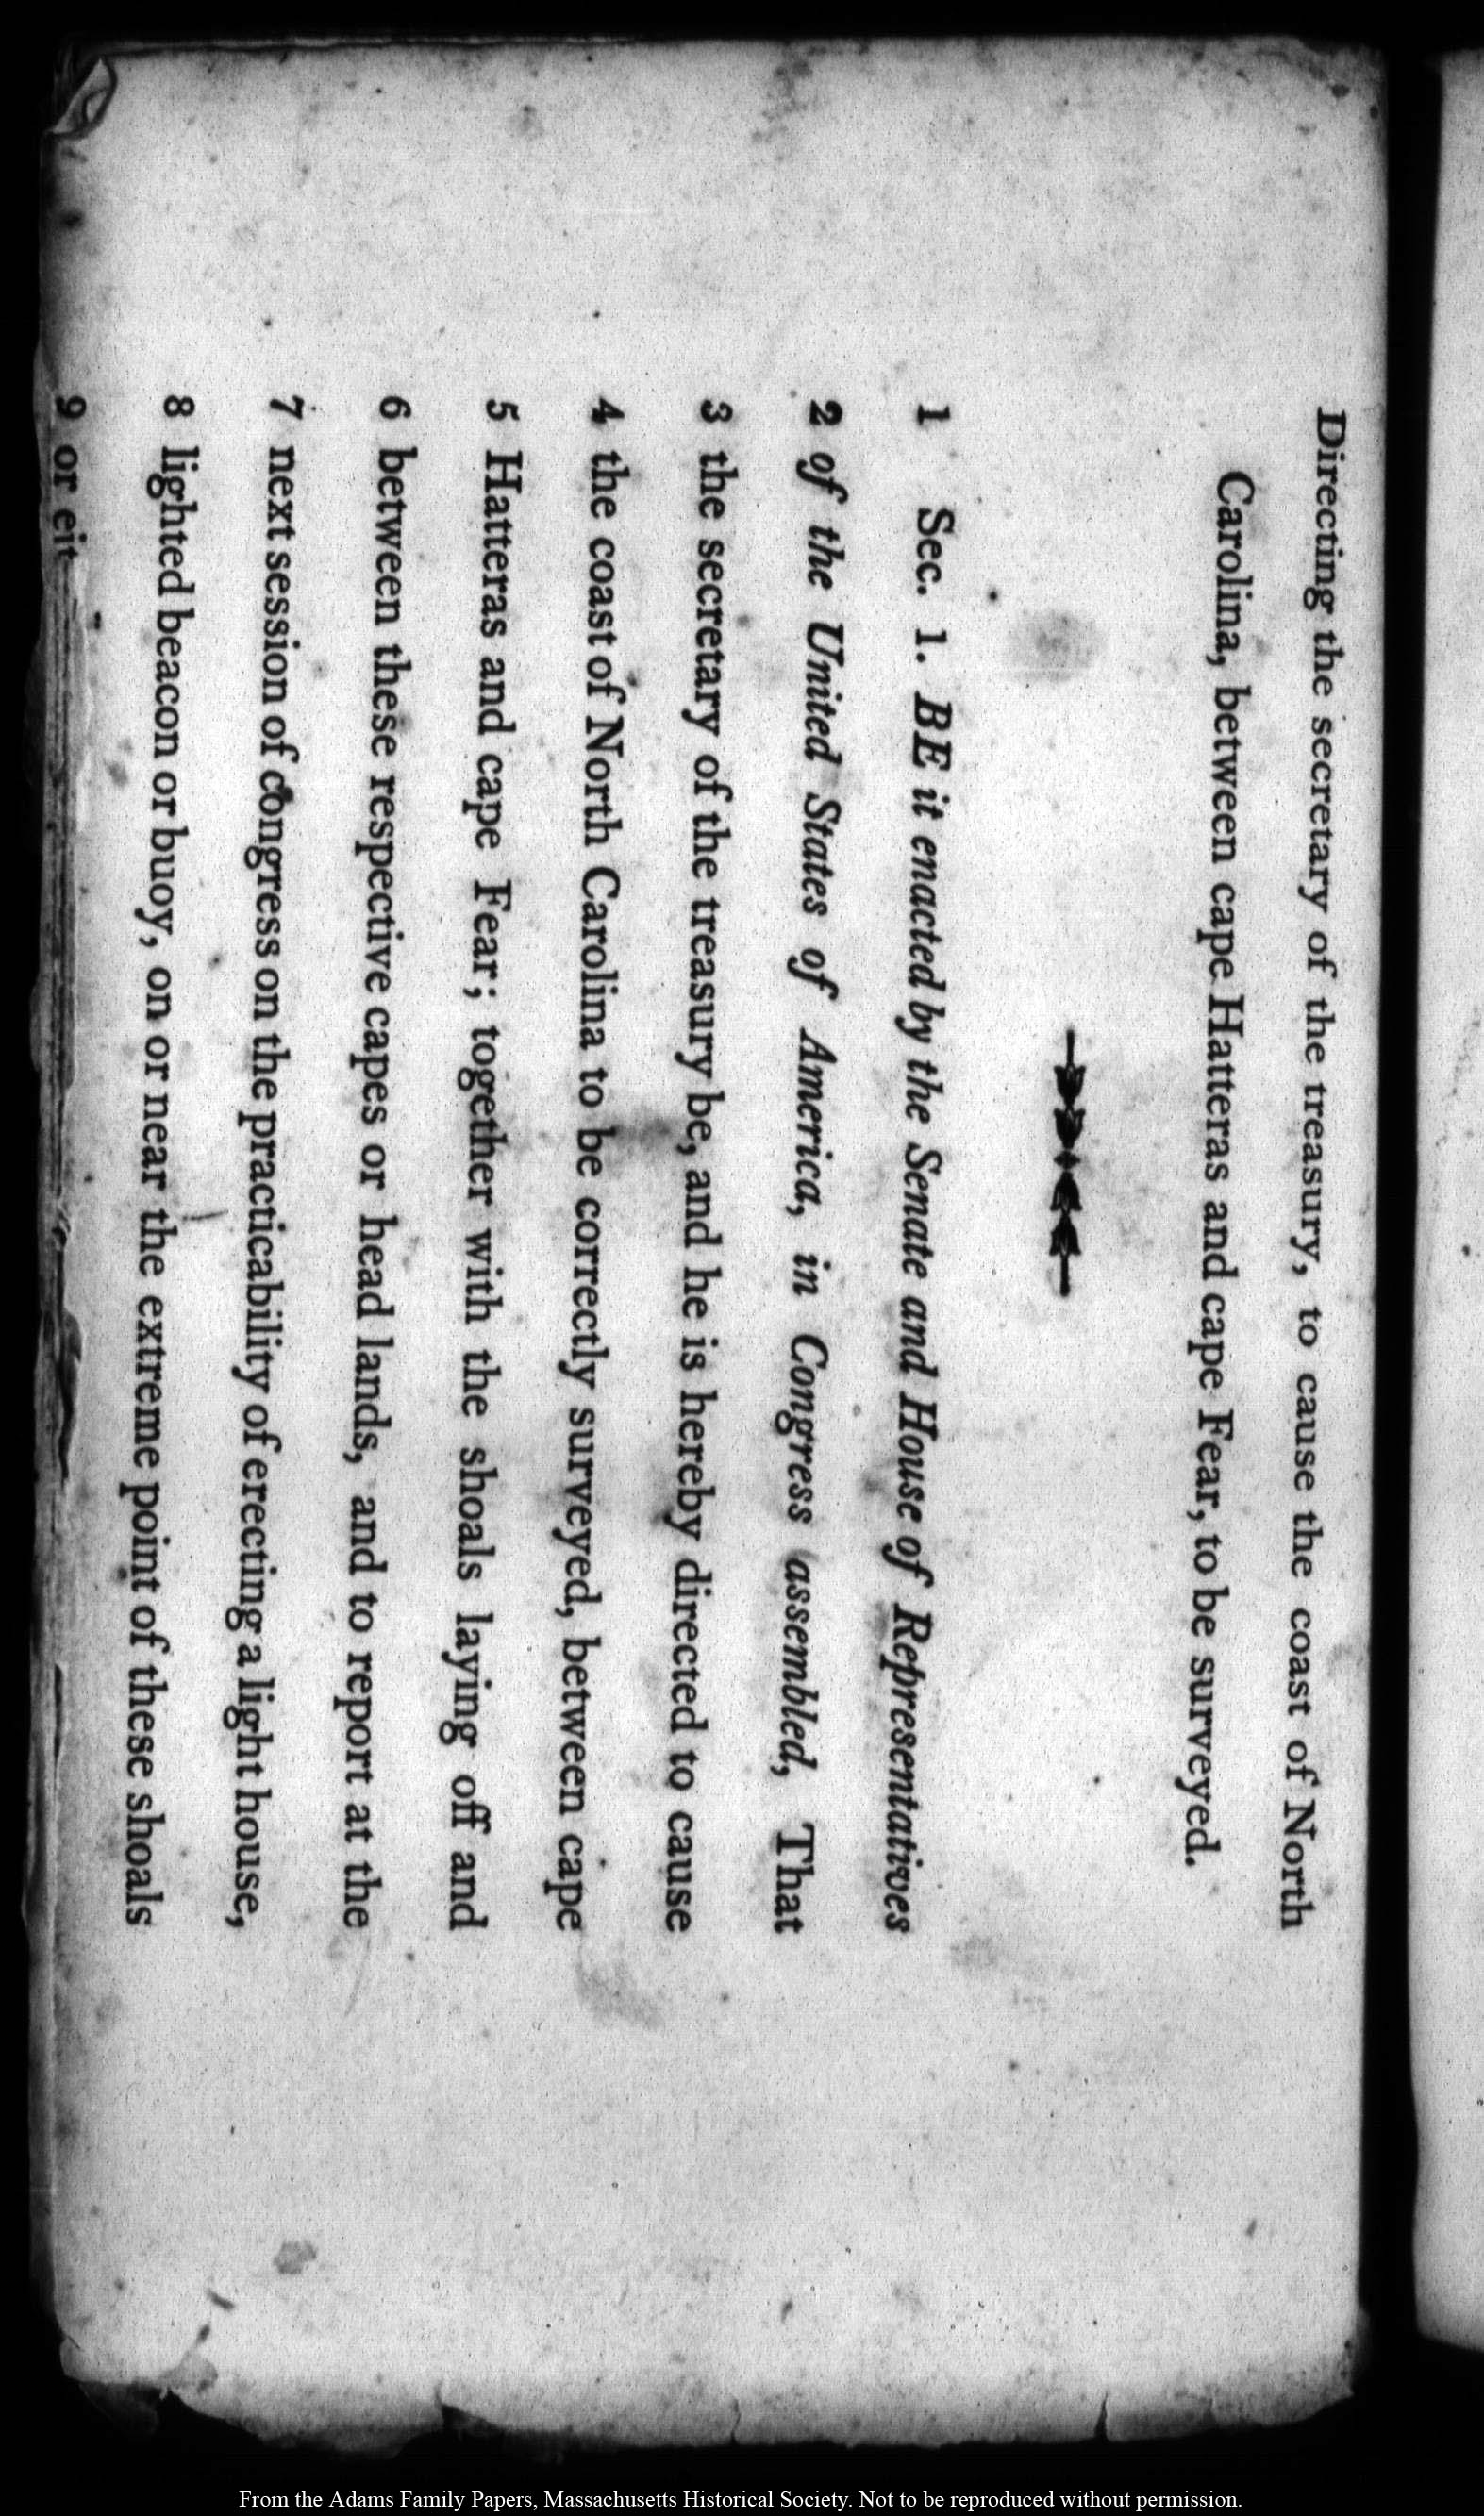 Directing the secretary of the treasury, to cause the coast of North
Carolina, between cape Hatteras and cape Fear, to be surveyed.
1 Sec. 1. BE it enacted by the Senate and House of Representatives
2 of the United States of America, in Congress assembled, That
3 the secretary of the treasury be, and he is hereby directed to cause
4 the coast of North Carolina to be correctly surveyed, between cape
5 Hatteras and cape Fear; together with the shoals laying off and
6 between these respective capes or head lands, and to report at the
7 next session of congress on the practicability of erecting a light house,
8 lighted beacon or buoy, on or near the extreme point of these shoals
9 or eit
From the Adams Family Papers, Massachusetts Historical Society. Not to be reproduced without permission.